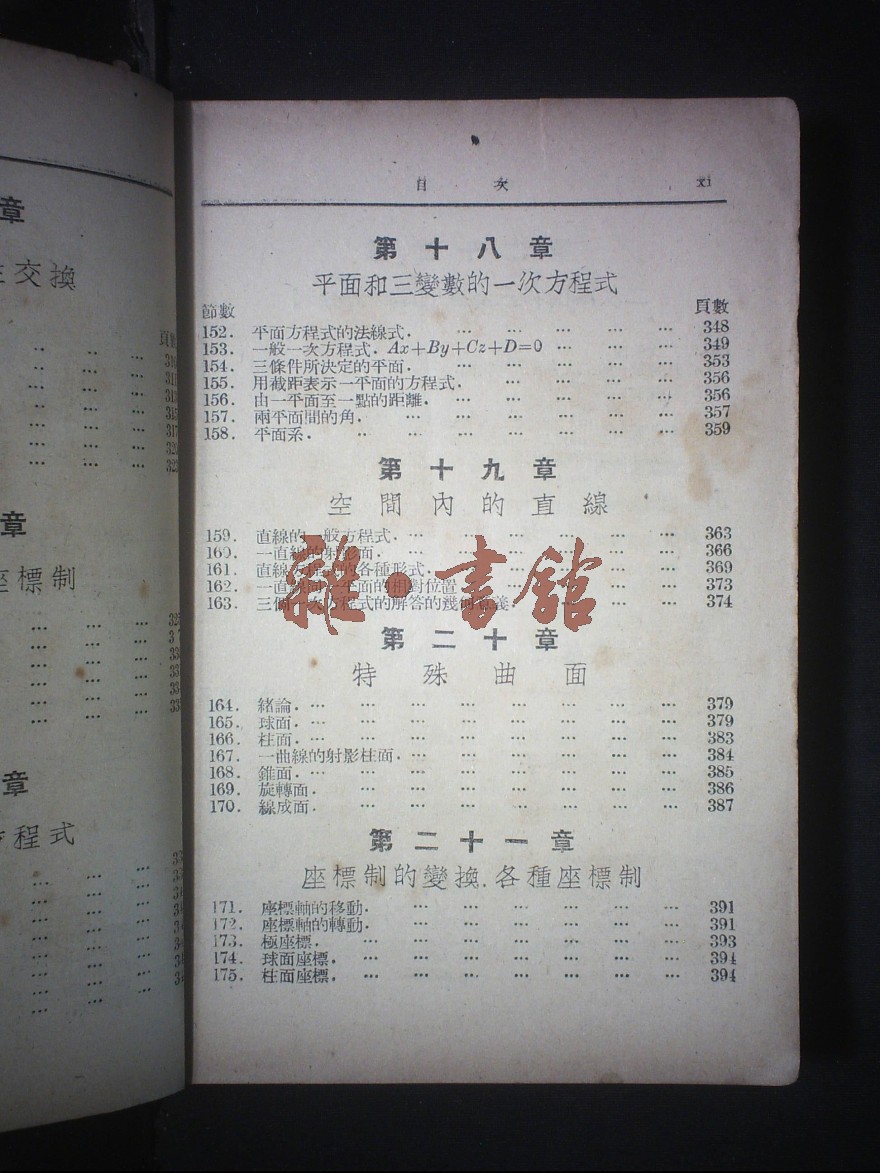 章
交換
章
標制
章
程式
目 次 xi
第十八章
平面和三變數的一次方程式
節數 頁數
152. 平面方程式的法線式. … … … … … 348
153. 一般一次方程式. Ax+By+Cz+D=0 … … … 349
154. 三條件所決定的平面. … … … … … 353
155. 用截距表示一平面的方程式. … … … … 356
156. 由一平面至一點的距離. … … … … … 356
157. 兩平面間的角. … … … … … … 357
158. 平面系. … … … … … … … 359
第十九章
空間內的直線
159. 直線的一般方程式. … … … … … … 363
160. 一直線的射影面. … … … … … … 366
161. 直線方程式的各種形式. … … … … … 369
162. 一直線同一平面的相對位置 … … … … … 373
163. 三個一次方程式的解答的幾何意義. … … … 374
雜·書館
第二十章
特殊曲面
164. 緒論. … … … … … … … … 379
165. 球面. … … … … … … … … 379
166. 柱面. … … … … … … … … 383
167. 一曲線的射影柱面. … … … … … … 384
168. 錐面. … … … … … … … … 385
169. 旋轉面. … … … … … … … 386
170. 線成面. … … … … … … … 387
第二十一章
座標制的變換.各種座標制
171. 座標軸的移動. … … … … … … 391
172. 座標軸的轉動. … … … … … … 391
173. 極座標. … … … … … … … 393
174. 球面座標. … … … … … … … 394
175. 柱面座標. … … … … … … … 394